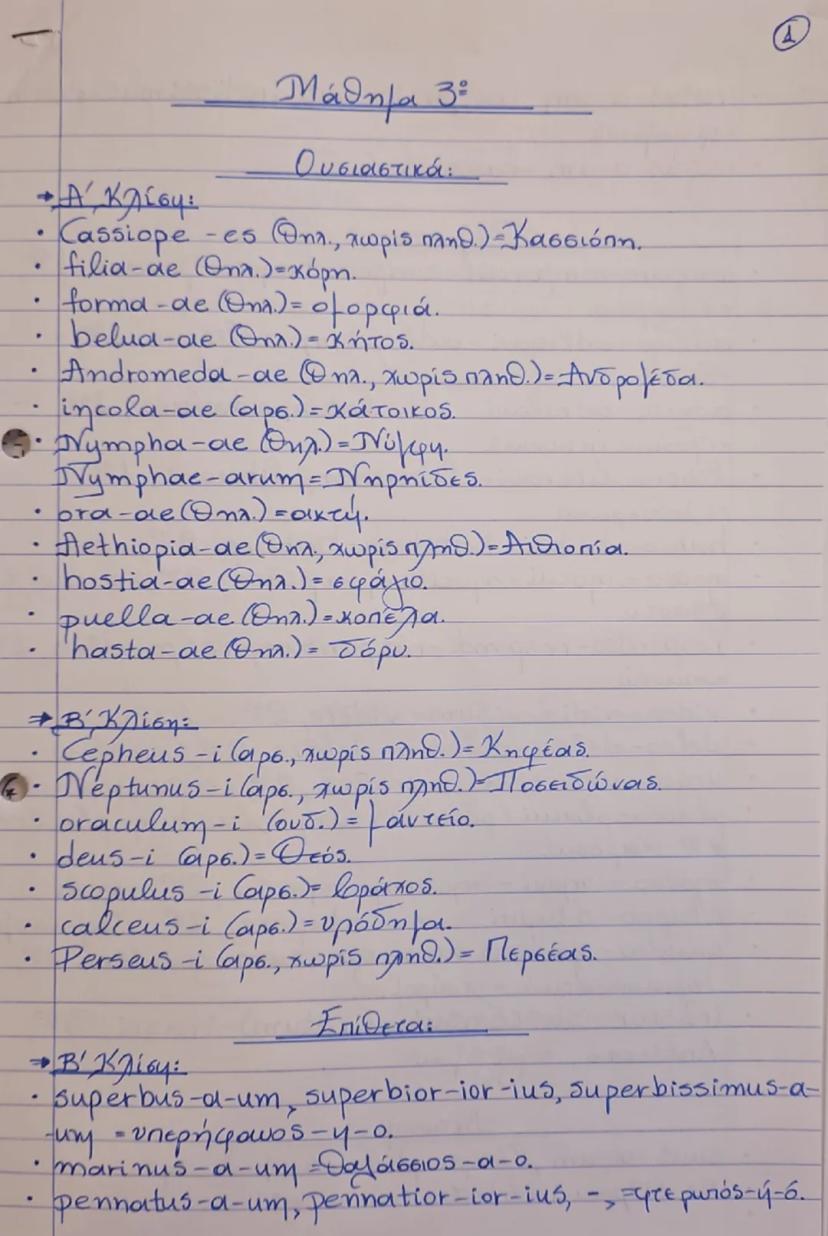 1
Μάθημα 3ο
Ουσιαστικά:
→ Α' Κλίση:
• Cassiope -es (θηλ., χωρίς πληθ.)=Κασσιόπη.
• filia-ae (θηλ.)=κόρη.
• forma-ae (θηλ.)= ομορφιά.
• belua-ae (θηλ.)= κήτος.
• Andromeda-ae (θηλ., χωρίς πληθ.)=Ανδρομέδα.
• incola-ae (αρσ.)=κάτοικος.
• Nympha-ae (θηλ.)=Νύμφη.
Nymphae-arum=Νηρηίδες.
• ora-ae(θηλ.)=ακτή.
• Aethiopia-ae(θηλ., χωρίς πληθ.)=Αιθιοπία.
• hostia-ae(θηλ.)= σφάγιο.
• puella-ae (θηλ.)=κοπέλα.
• hasta-ae(θηλ.)= δόρυ.
→ Β' Κλίση:
• Cepheus -i (αρσ., χωρίς πληθ.)= Κηφέας.
• Neptunus-i (αρσ., χωρίς πληθ.)=Ποσειδώνας.
• oraculum-i (ουδ.)= μαντείο.
• deus-i (αρσ.)= Θεός.
• scopulus -i (αρσ.)= βράχος.
• calceus-i (αρσ.)=υπόδημα.
• Perseus-i (αρσ., χωρίς πληθ.)= Περσέας.
Επίθετα:
→ Β' Κλίση:
• superbus-a-um, superbior-ior-ius, superbissimus-a-
-um =υπερήφανος-η-ο.
• marinus-a-um =θαλάσσιος-α-ο.
• pennatus-a-um, pennatior-ior-ius, -, =φτερωτός-ή-ό.